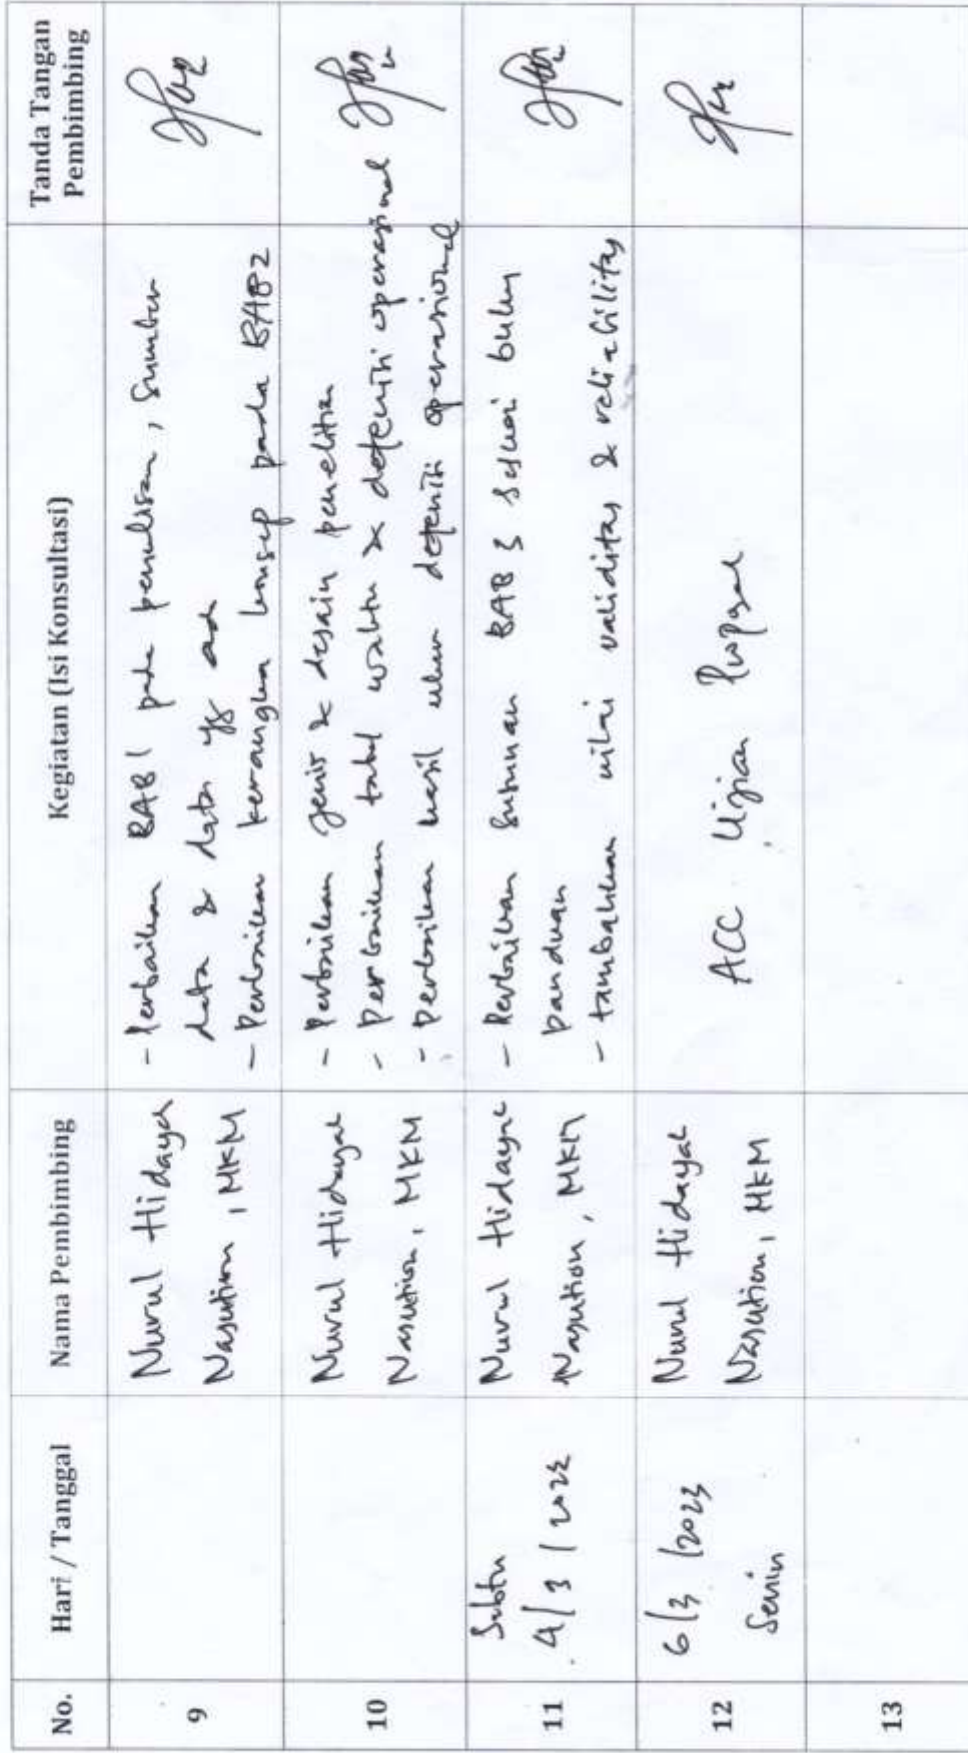 No.
Hari / Tanggal
Nama Pembimbing
Kegiatan (Isi Konsultasi)
Tanda Tangan
Pembimbing
9
Nurul Hidayah
Nasution, MKM
- Perbaikan BAB 1 pada penulisan, sumber
data & data yg ada
- Perbaikan kerangka konsep pada BAB 2
10
Nurul Hidayah
Nasution, MKM
- Perbaikan jenis & desain penelitian
- Perbaikan tabel waktu & defenisi operasional
- Perbaikan hasil ukur defenisi operasional
11
Sabtu
4/3/2023
Nurul Hidayah
Nasution, MKM
- Perbaikan susunan BAB 3 sesuai buku
panduan
- tambahkan nilai validitas & reliabilitas
12
6/3/2023
Senin
Nurul Hidayah
Nasution, MKM
ACC Ujian Proposal
13